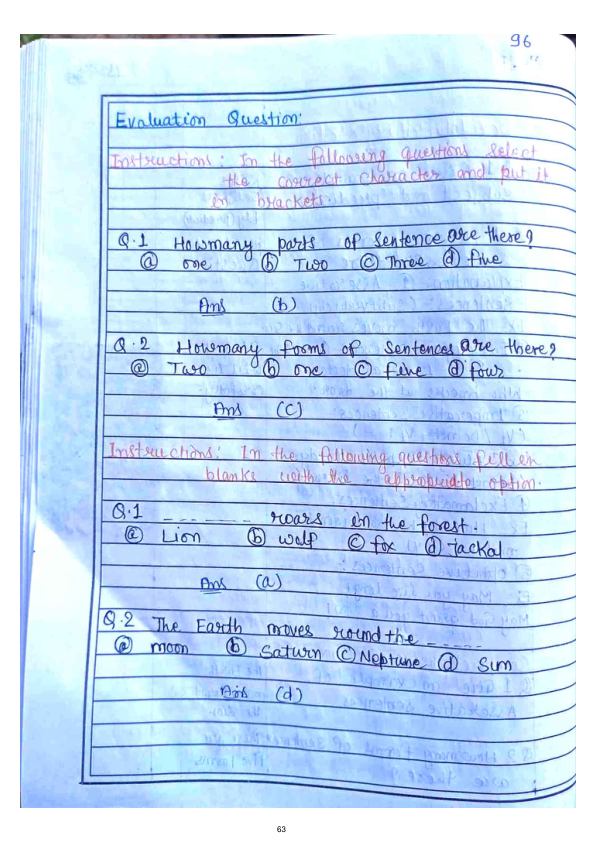 96
Evaluation Question.
Instructions: In the following questions select
the correct character and put it
in brackets.
Q.1 Howmany parts of sentence are there?
(a) one (b) Two (c) Three (d) five
Ans (b)
Q.2 Howmany forms of sentences are there?
(a) Two (b) one (c) five (d) four.
Ans (C)
Instructions: In the following questions fill in
blanks with the option.
Q.1 _ _ _ _ _ _ _ roars in the forest.
(a) Lion (b) wolf (c) fox (d) jackal
Ans (a)
Q.2 The Earth moves round the _ _ _ _ _
(a) moon (b) Saturn (c) Neptune (d) Sun
Ans (d)
63